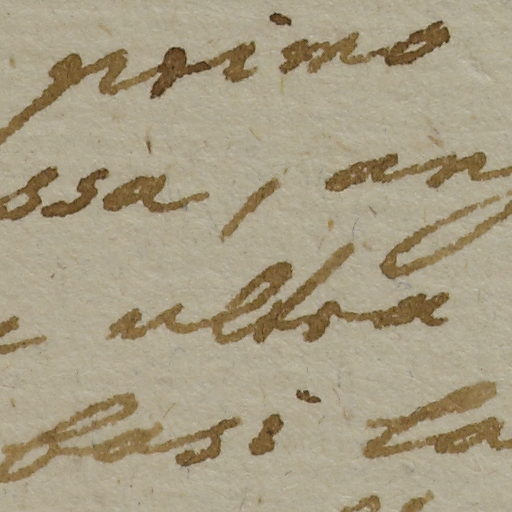 primo
ssa, an
ultra
basi la